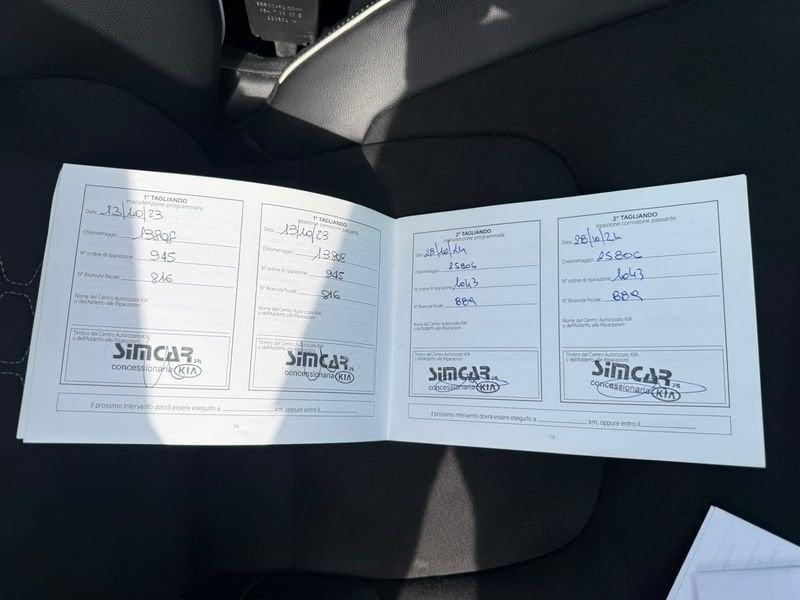 1° TAGLIANDO
manutenzione programmata
Data: 13/10/23
Chilometraggio: 13808
N° ordine di riparazione: 945
N° Ricevuta fiscale: 816
Nome del Centro Autorizzato KIA
o dell'Addetto alle Riparazioni:
Timbro del Centro Autorizzato KIA
o dell'Addetto alle Riparazioni:
SIMCAR SRL
concessionaria KIA
1° TAGLIANDO
ispezione corrosione passante
Data: 13/10/23
Chilometraggio: 13808
N° ordine di riparazione: 945
N° Ricevuta fiscale: 816
Nome del Centro Autorizzato KIA
o dell'Addetto alle Riparazioni:
Timbro del Centro Autorizzato KIA
o dell'Addetto alle Riparazioni:
SIMCAR SRL
concessionaria KIA
il prossimo intervento dovrà essere eseguito a km, oppure entro il
14
2° TAGLIANDO
manutenzione programmata
Data: 28/10/24
Chilometraggio: 25806
N° ordine di riparazione: 1043
N° Ricevuta fiscale: 889
Nome del Centro Autorizzato KIA
o dell'Addetto alle Riparazioni:
Timbro del Centro Autorizzato KIA
o dell'Addetto alle Riparazioni:
SIMCAR SRL
concessionaria KIA
2° TAGLIANDO
ispezione corrosione passante
Data: 28/10/24
Chilometraggio: 25806
N° ordine di riparazione: 1043
N° Ricevuta fiscale: 889
Nome del Centro Autorizzato KIA
o dell'Addetto alle Riparazioni:
Timbro del Centro Autorizzato KIA
o dell'Addetto alle Riparazioni:
SIMCAR SRL
concessionaria KIA
il prossimo intervento dovrà essere eseguito a km, oppure entro il
15